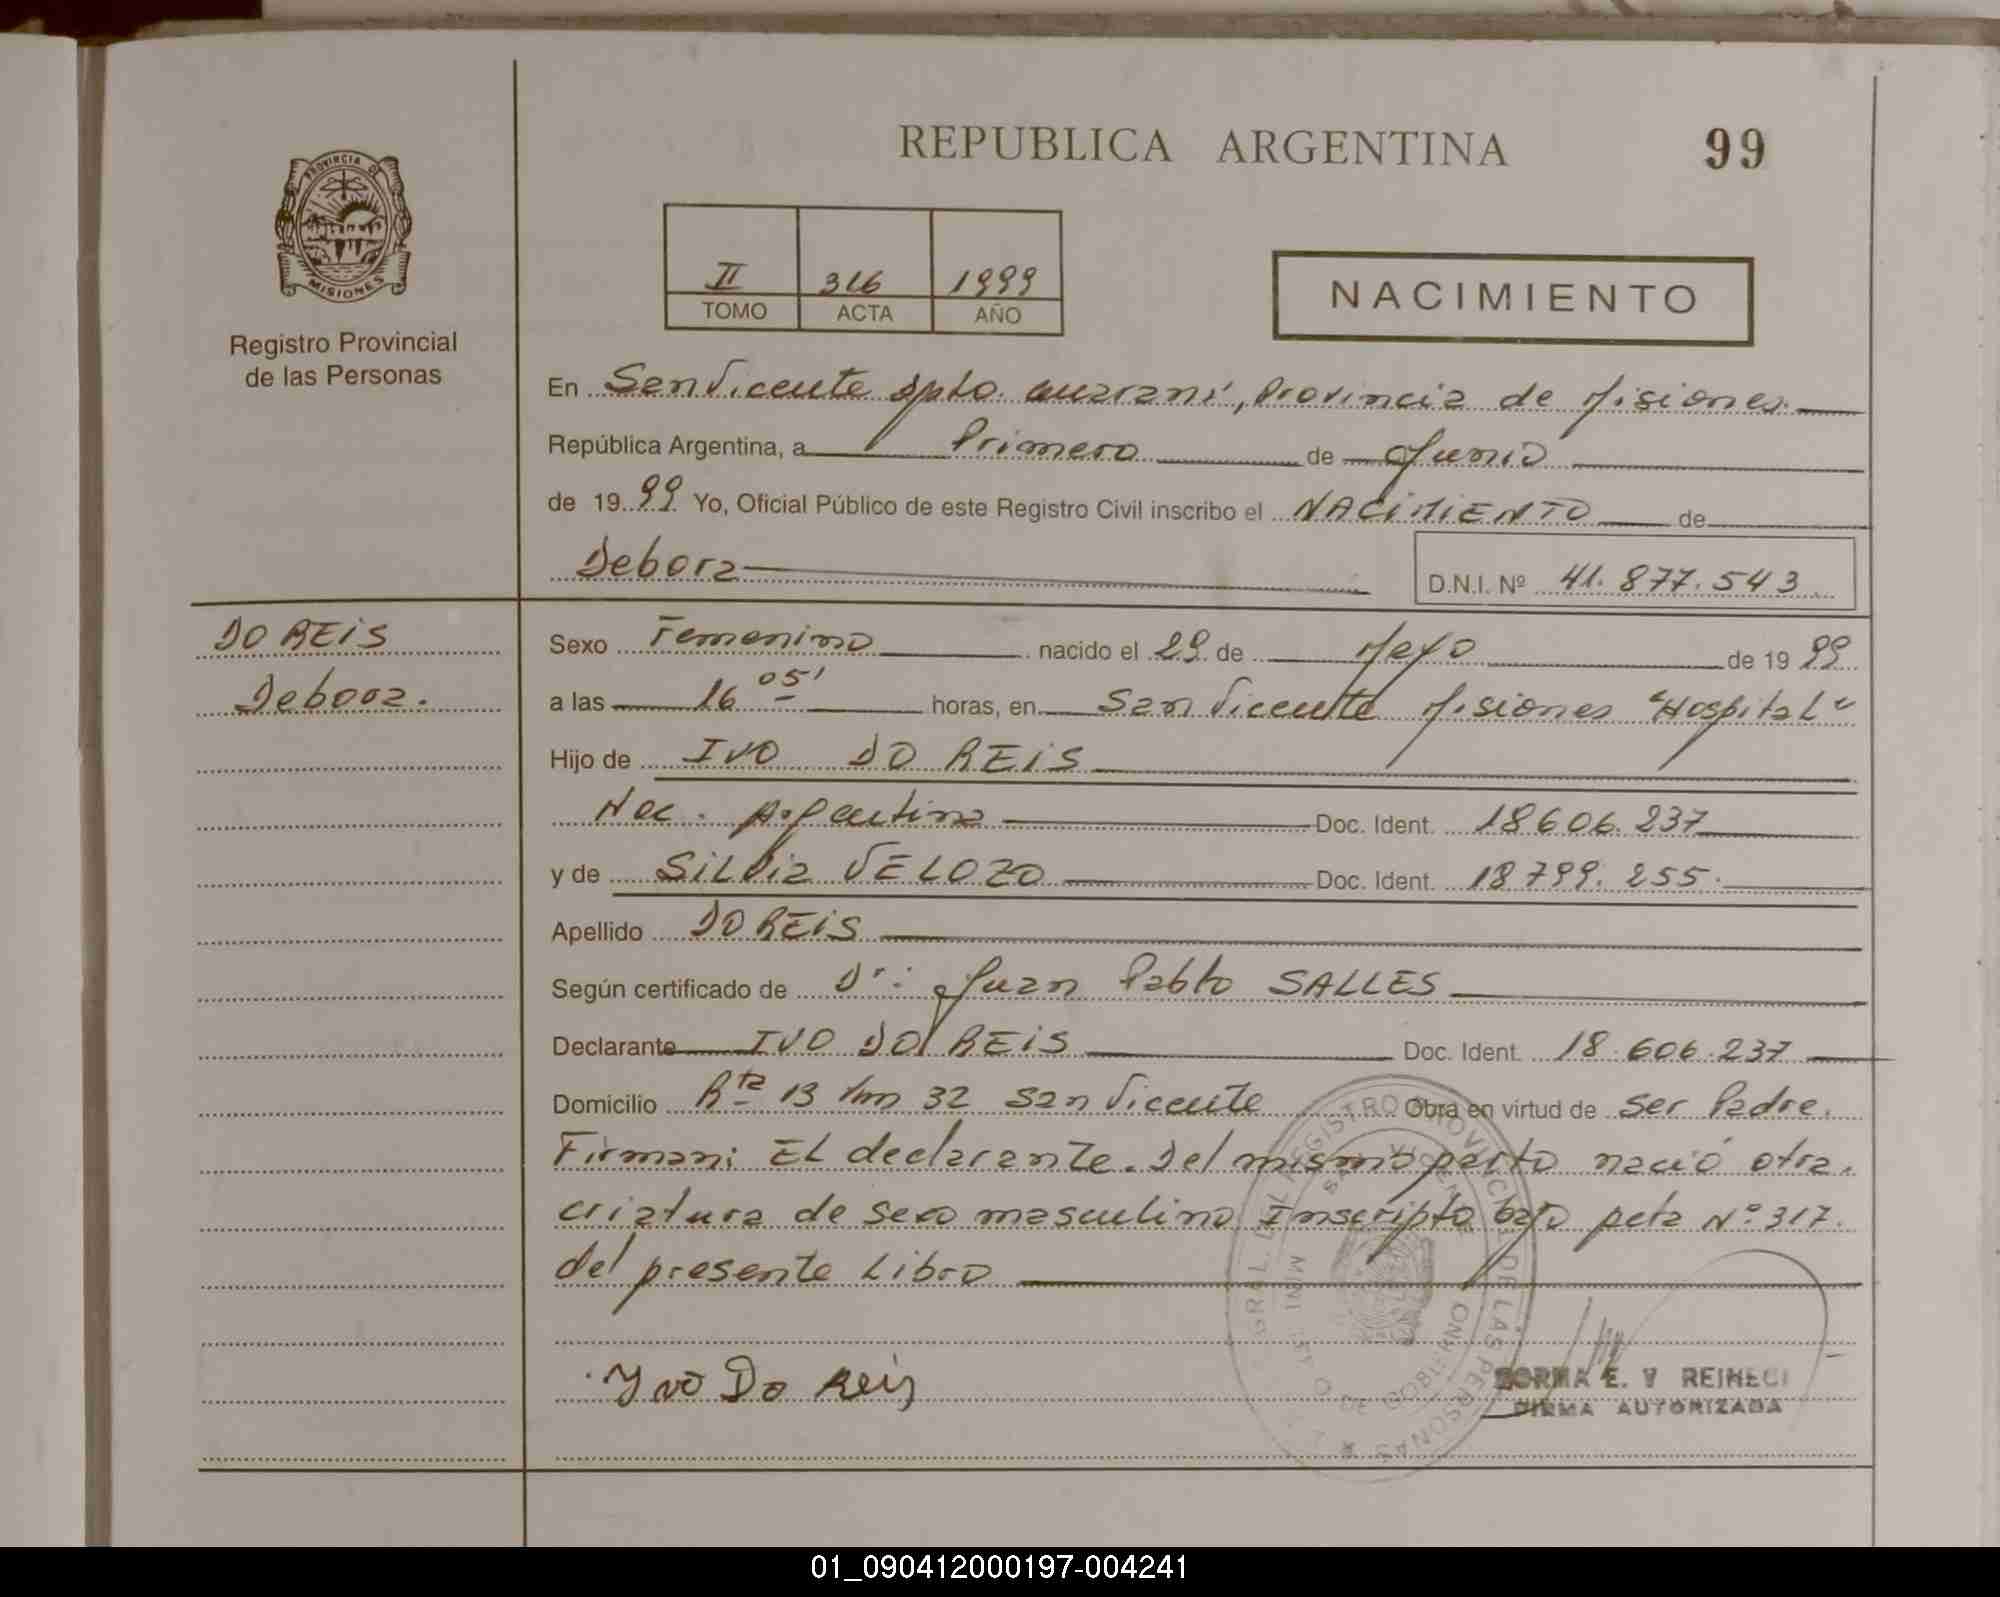 REPUBLICA ARGENTINA
99
PROVINCIA DE
MISIONES
Registro Provincial
de las Personas
II 316 1999
TOMO ACTA AÑO
NACIMIENTO
En San Vicente Dpto. Guaraní, Provincia de Misiones.
República Argentina, a Primero de Junio
de 19 99 Yo, Oficial Público de este Registro Civil inscribo el NACIMIENTO de
Debora
D.N.I. Nº 41.877.543
DO REIS
Debora.
Sexo Femenino nacido el 29 de Mayo de 19 99
a las 16 05' horas, en San Vicente Misiones "Hospital"
Hijo de IVO DO REIS
Nac. Argentina Doc. Ident. 18606.237
y de SILVIA VELOZO Doc. Ident. 18799.255.
Apellido DO REIS
Según certificado de Dr: Juan Pablo SALLES
Declarante IVO DO REIS Doc. Ident. 18.606.237
Domicilio Rta 13 Km 32 San Vicente Obra en virtud de ser Padre.
Firman: El declarante. Del mismo parto nació otra
criatura de sexo masculino Inscripto bajo Acta Nº 317.
del presente Libro
Yvo Do Reis
E. V REINECI
FIRMA AUTORIZADA
GRAL. DEL REGISTRO PROVINCIAL DE LAS PERSONAS
SAN VICENTE
MINISTERIO DE GOBIERNO
01_090412000197-004241